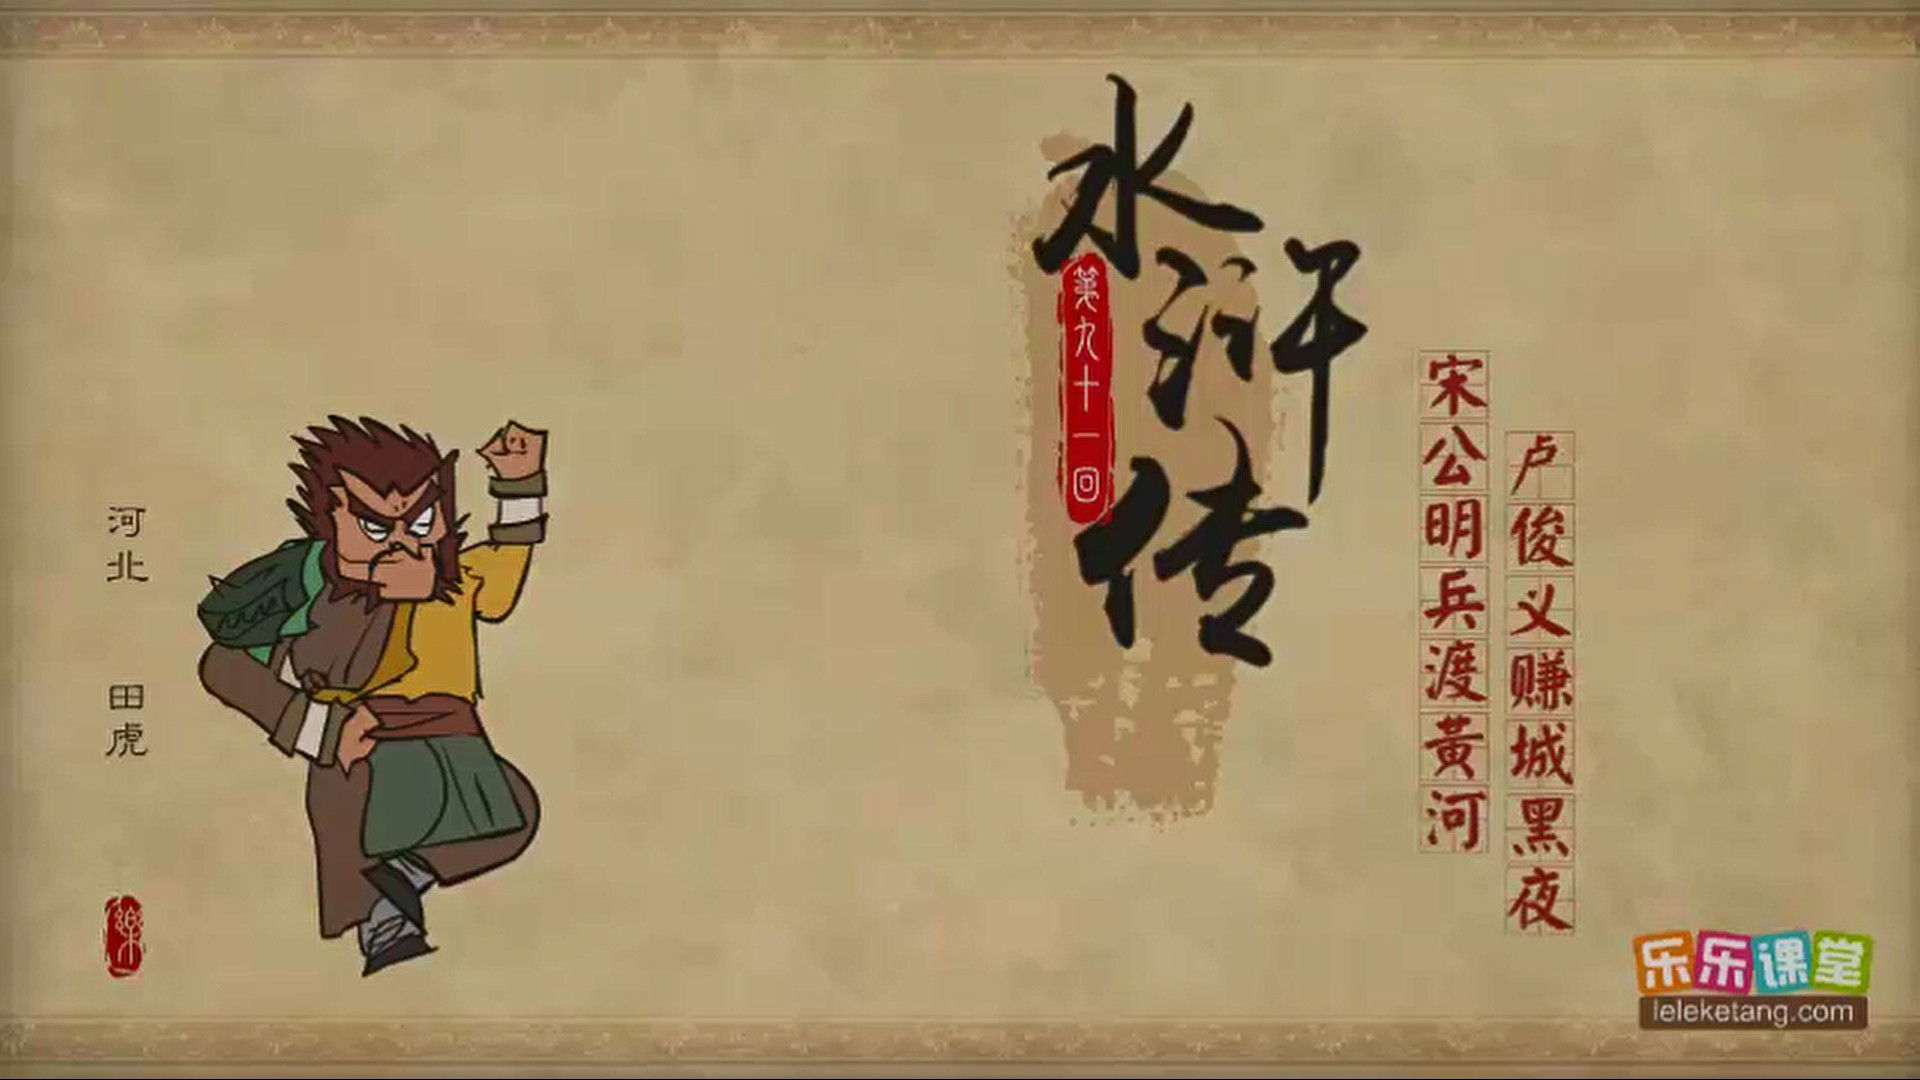 水浒传
第九十一回
宋公明兵渡黄河
卢俊义赚城黑夜
河北 田虎
樂
乐乐课堂
leleketang.com